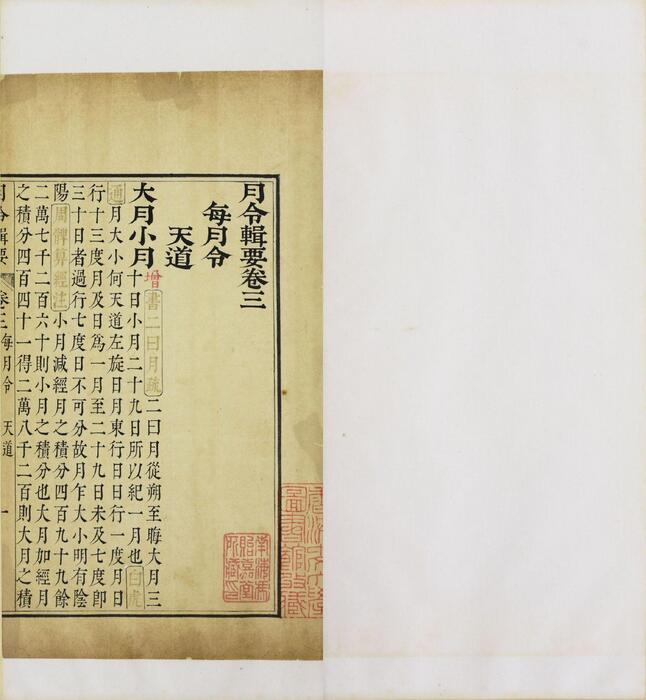 月令輯要卷三
每月令
天道
大月小月增書二曰月疏二曰月從朔至晦大月三
十日小月二十九日所以紀一月也白虎
通月大小何天道左旋日月東行日日行一度月日
行十三度月及日爲一月至二十九日未及七度卽
三十日者過行七度日不可分故月乍大小明有陰
陽周髀算經注小月減經月之積分四百九十九餘
二萬七千二百六十則小月之積分也大月加經月
之積分四百四十一得二萬八千二百則大月之積
月令輯要 卷三 每月令 天道 一